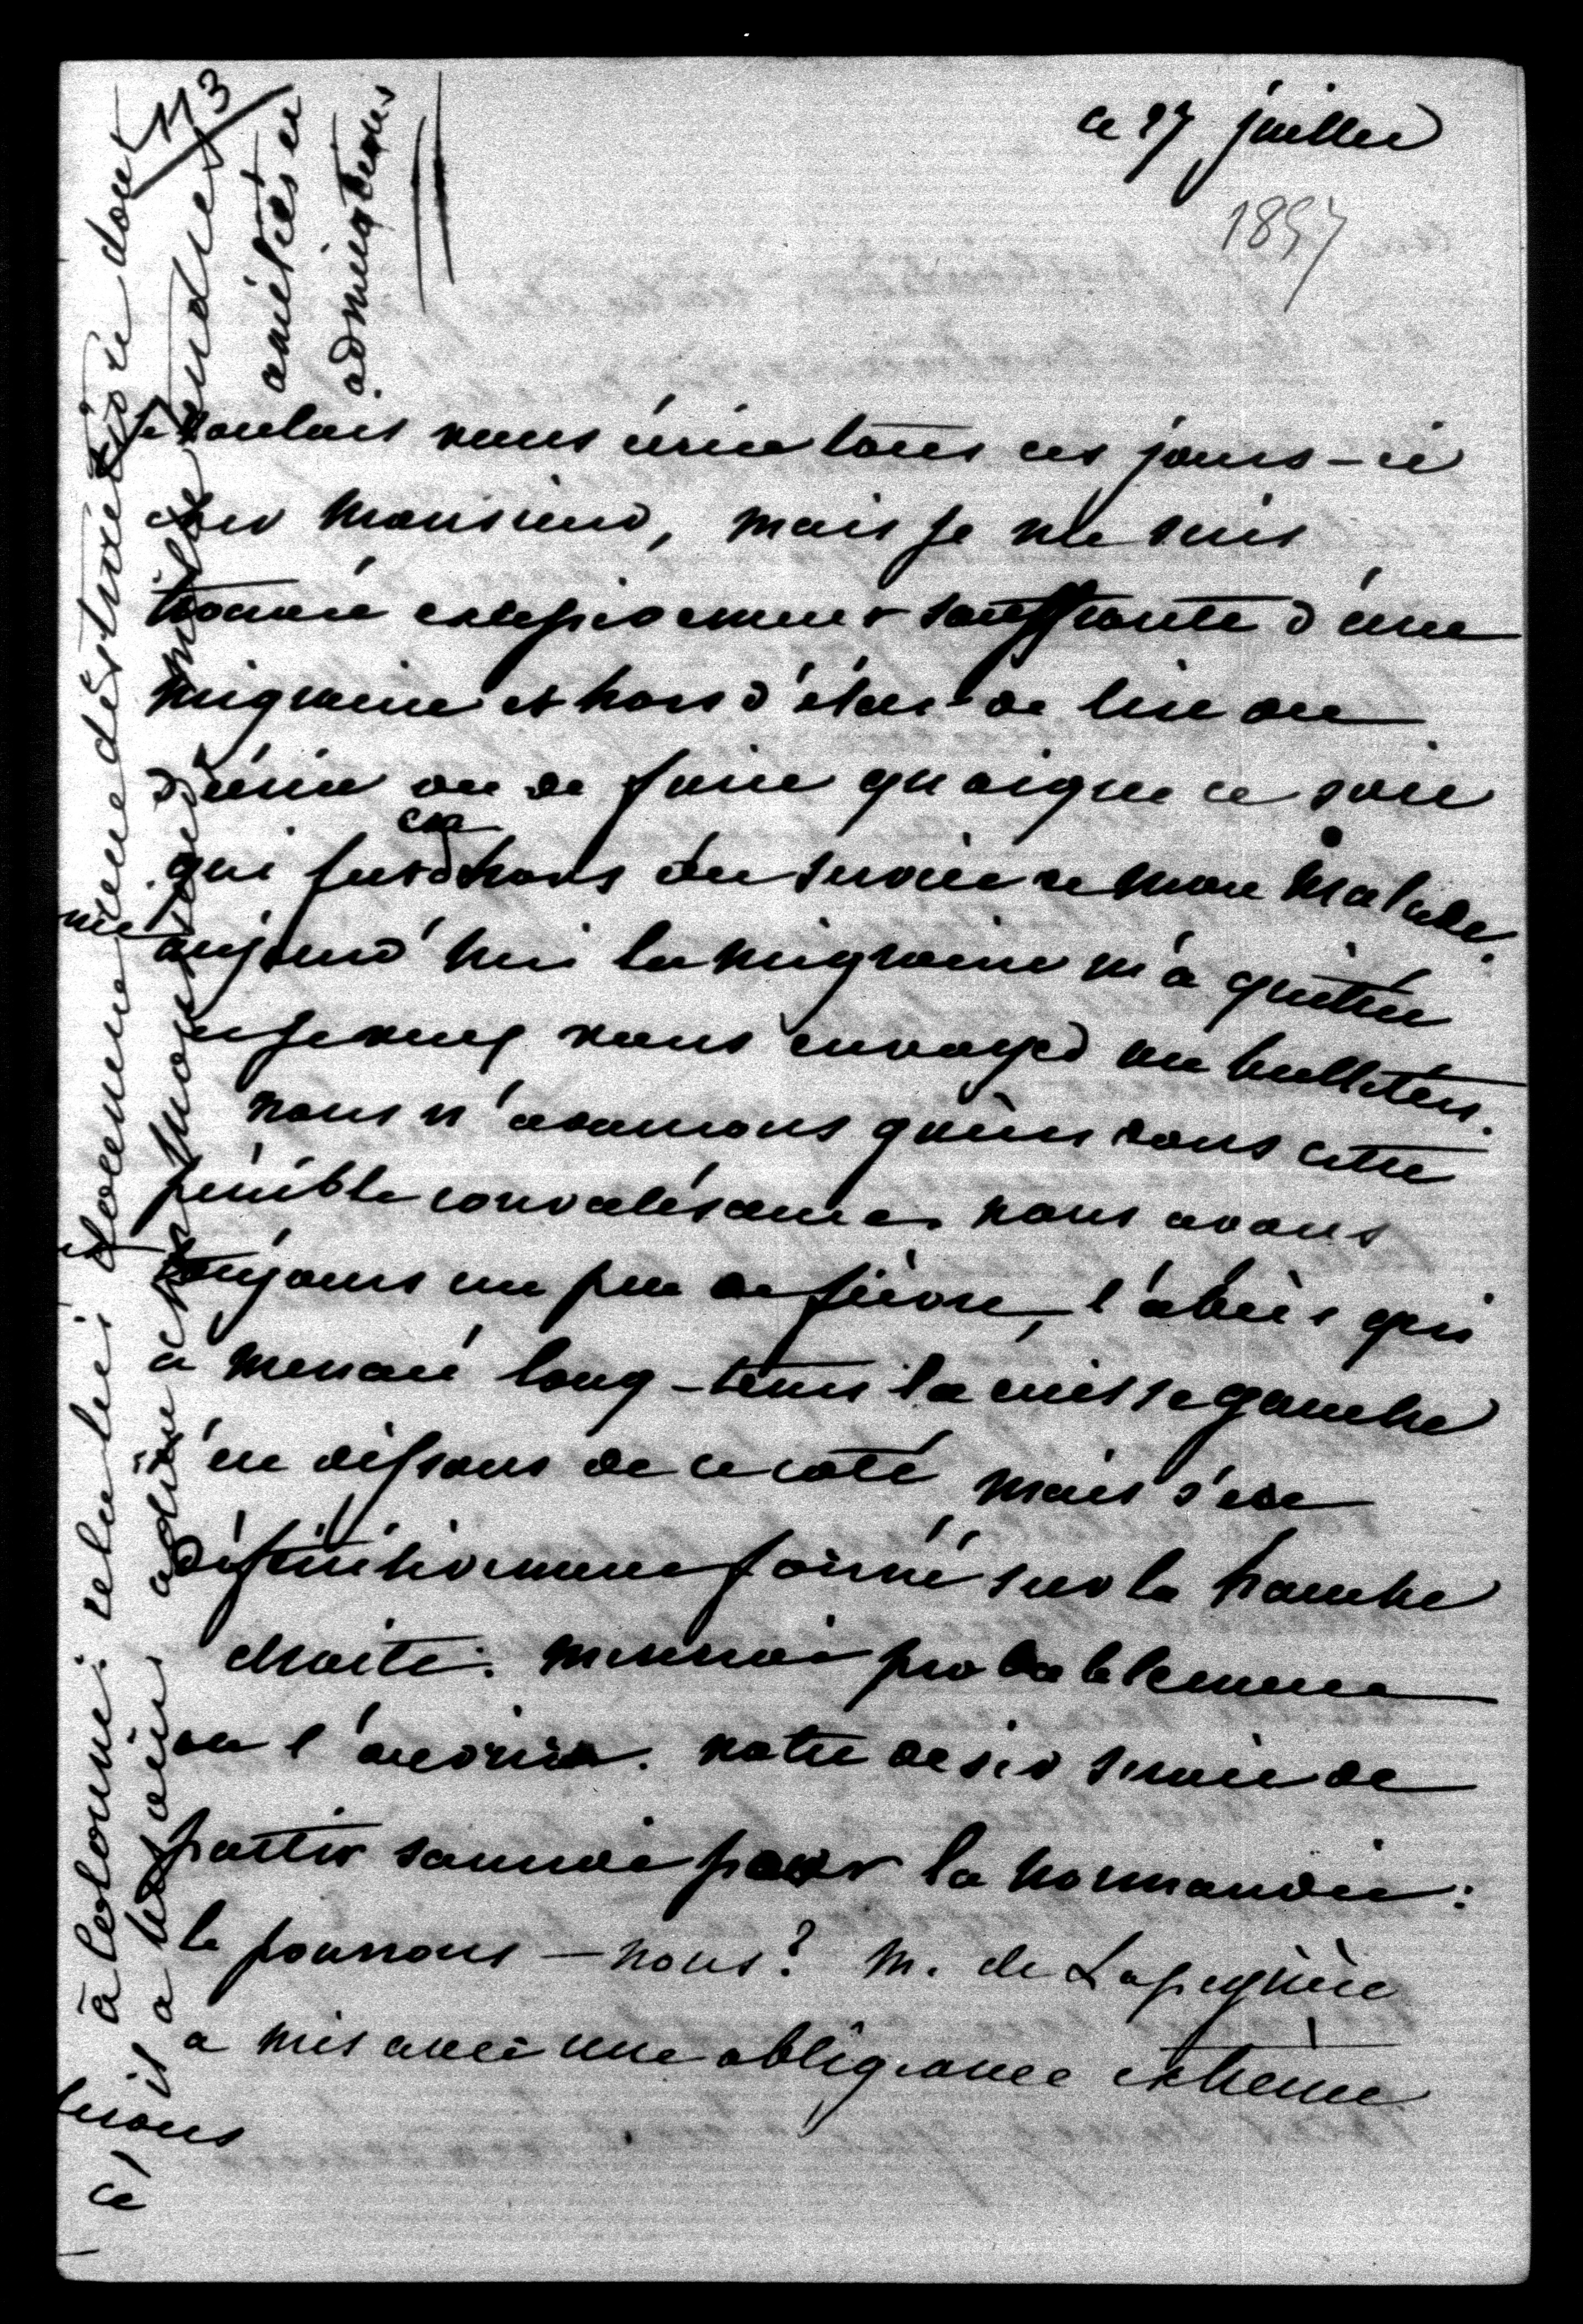 113
ce 27 juillet
1857
Je voulais vous écrire tous ces jours-ci
cher Monsieur, mais je me suis
trouvée excessivement souffrante d'une
migraine et hors d'état de lire ou
d'écrire ou de faire quoique ce soit
qui fut en dehors du service de mon malade.
aujourd'hui la migraine m'a quittée
et je veux vous envoyer un bulletin.
nous n'avançons guère dans cette
pénible convalésance. nous avons
toujours un peu de fièvre, l'abcès qui
a menacé long-tems la cuisse gauche
s'en dissous de ce coté mais s'est
définitivement formé sur la hanche
droite. mercredi probablement
on l'ouvrira. notre desir serait de
partir samedi pour la normandie:
le pourrons-nous? M. de Lapeyrière
a mis avec une obligeance extrème
à la colonne: cela lui
une distraction dont
il a besoin
adieu
mille tendres
amitiés et
admirations